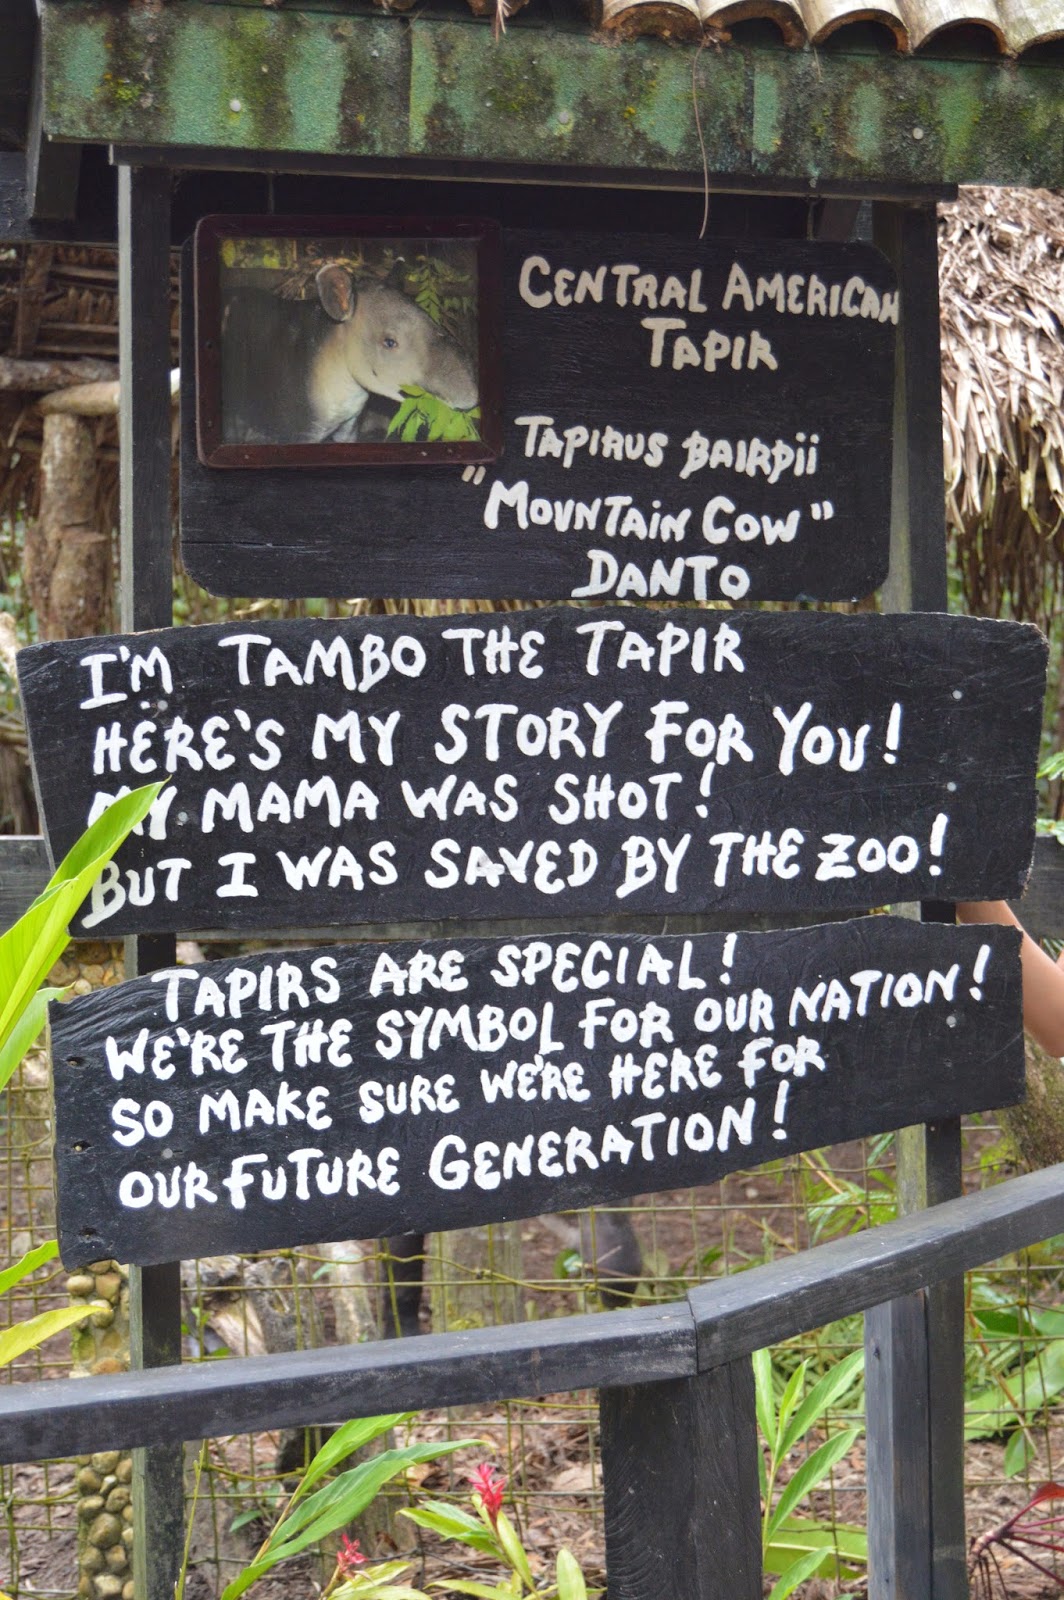 CENTRAL AMERICAN
TAPIR
TAPIRUS BAIRDII
"MOUNTAIN COW"
DANTO
I'M TAMBO THE TAPIR
HERE'S MY STORY FOR YOU!
MY MAMA WAS SHOT!
BUT I WAS SAVED BY THE ZOO!
TAPIRS ARE SPECIAL!
WE'RE THE SYMBOL FOR OUR NATION!
SO MAKE SURE WE'RE HERE FOR
OUR FUTURE GENERATION!